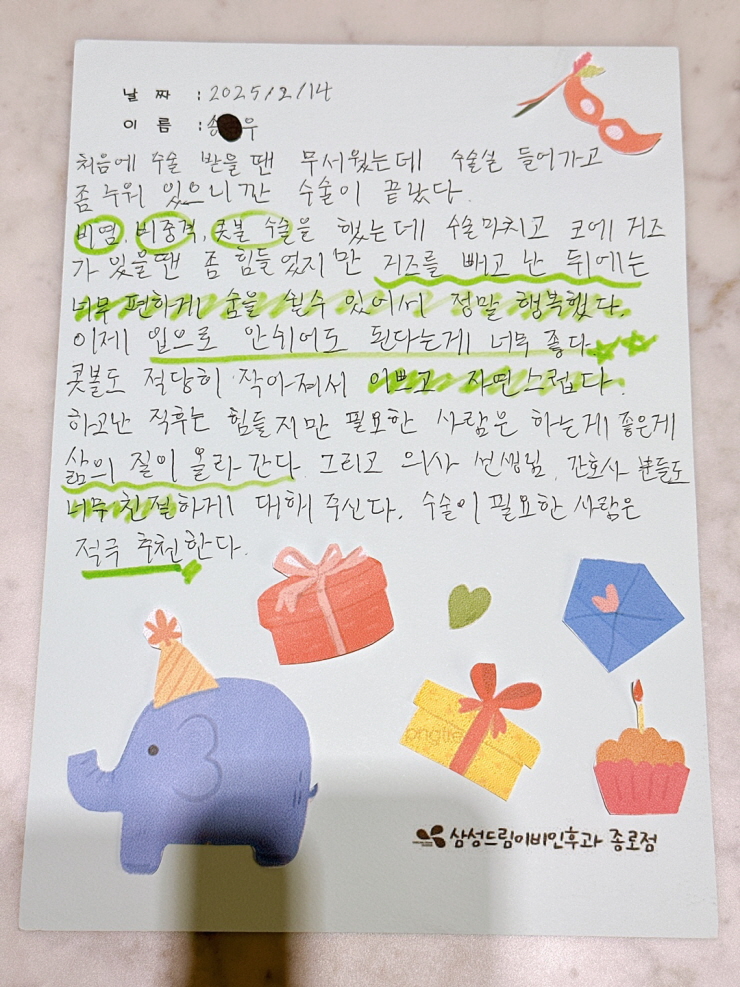 날 짜 : 2025/2/14
이 름 : 송 우
처음에 수술 받을 땐 무서웠는데 수술실 들어가고
좀 누워 있으니깐 수술이 끝났다.
비염, 비중격, 콧볼 수술을 했는데 수술마치고 코에 거즈
가 있을땐 좀 힘들었지만 거즈를 빼고 난 뒤에는
너무 편하게 숨을 쉴수 있어서 정말 행복했다.
이제 입으로 안쉬어도 된다는게 너무 좋다.
콧볼도 적당히 작아져서 이쁘고 자연스럽다.
하고난 직후는 힘들지만 필요한 사람은 하는게 좋은게
삶의 질이 올라간다. 그리고 의사 선생님, 간호사 분들도
너무 친절하게 대해 주신다. 수술이 필요한 사람은
적극 추천한다.
삼성드림이비인후과 종로점